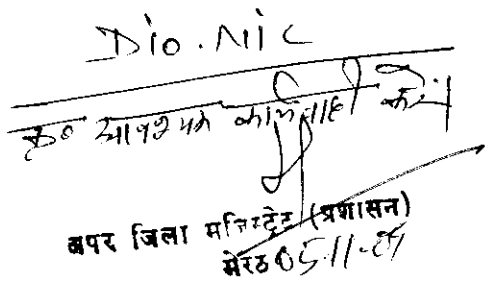 DIO.NIC
कृ० आवश्यक कार्यवाही करें
अपर जिला मजिस्ट्रेट (प्रशासन)
मेरठ 05-11-